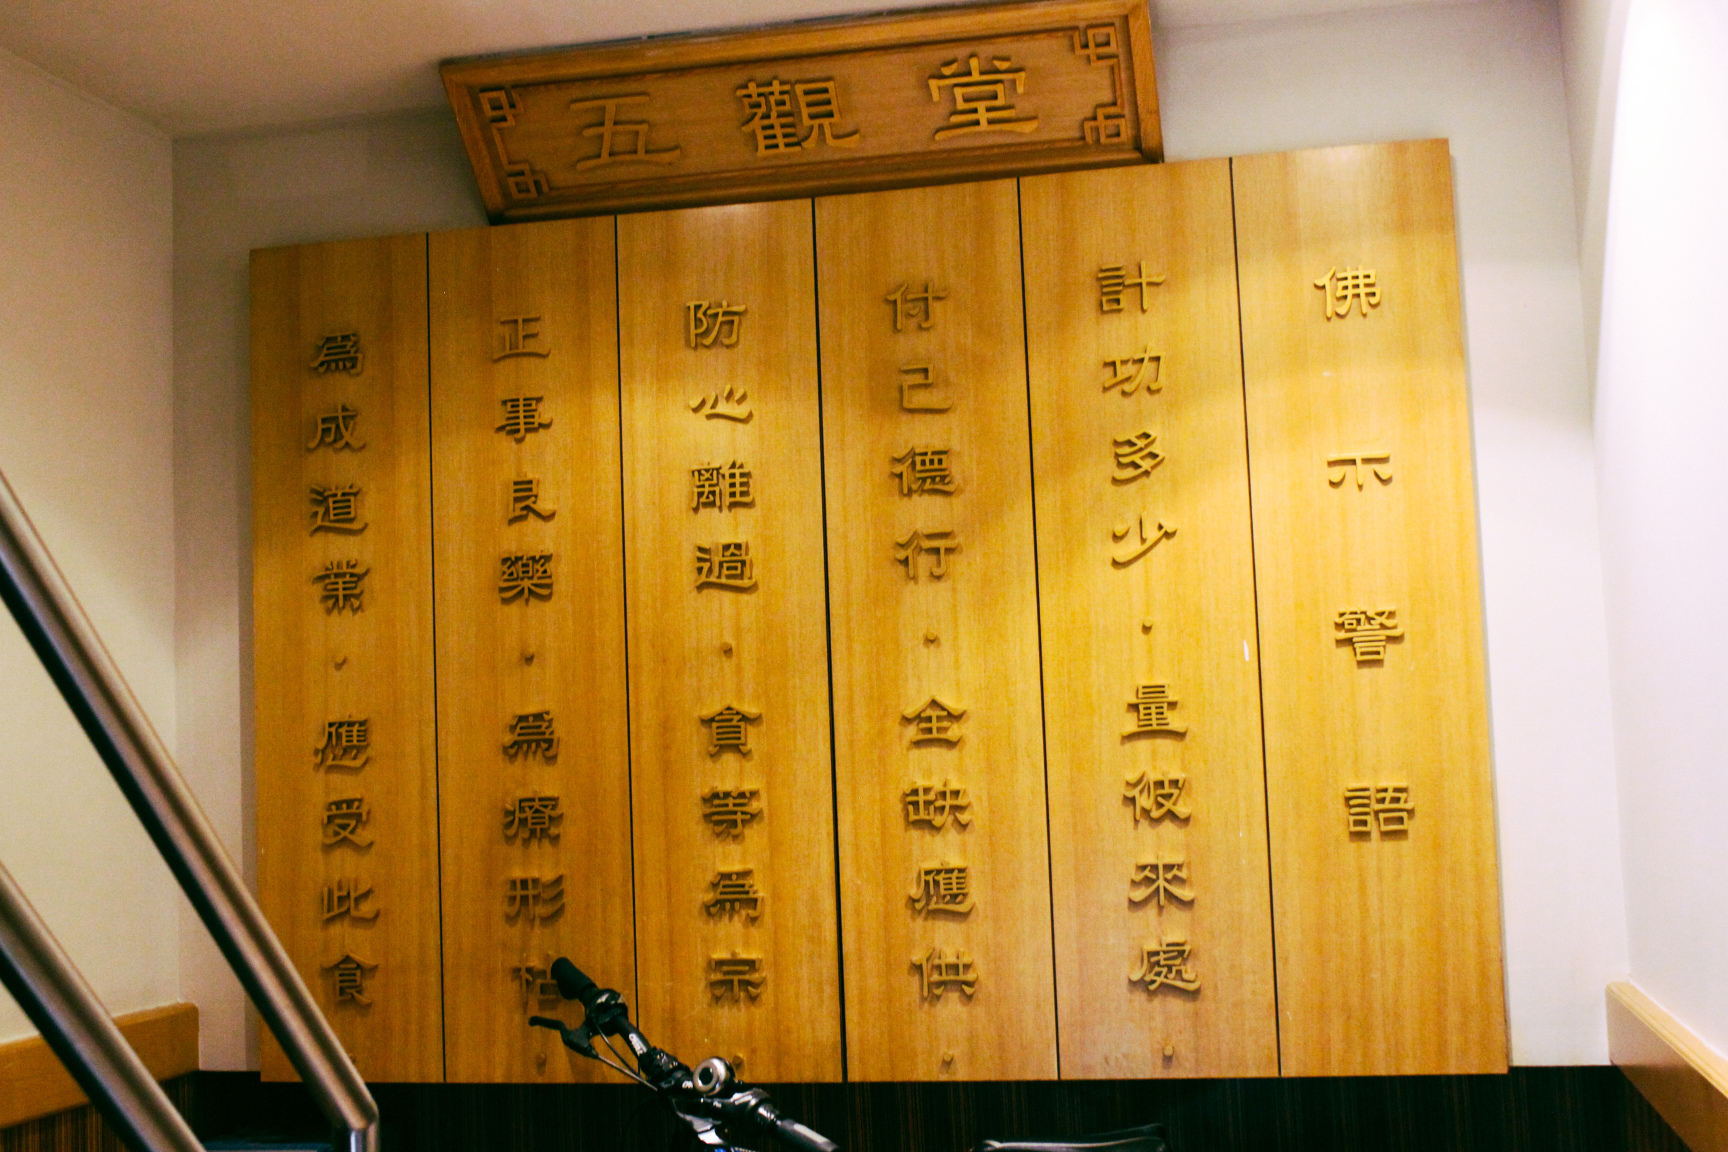 五觀堂
佛示警語
計功多少·量彼來處·
付己德行·全缺應供·
防心離過·貪等為宗·
正事良藥·為療形枯·
為成道業·應受此食·